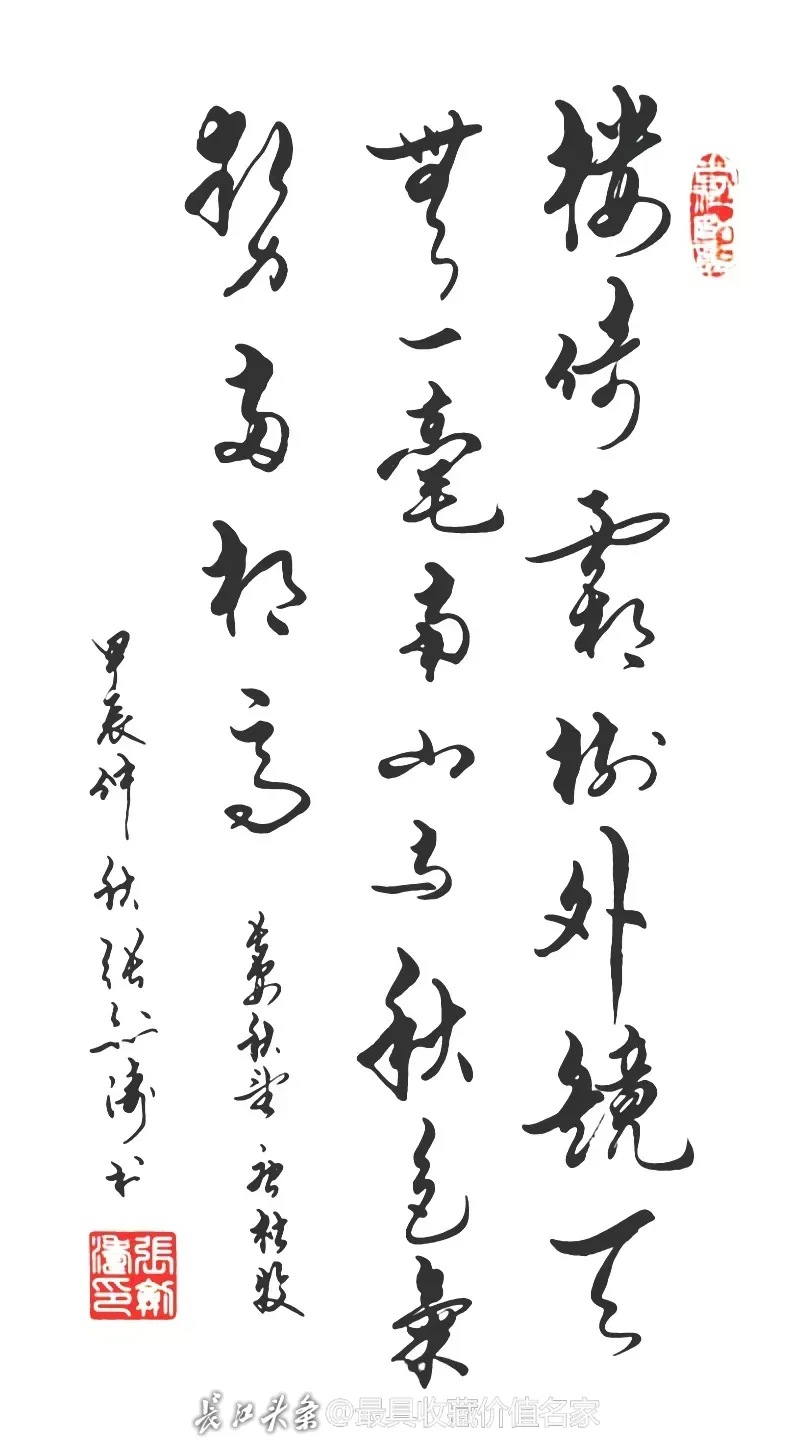 楼倚霜树外镜天
無一毫南山与秋色氣
势两相高
長安秋望 唐杜牧
甲辰仲秋张剑涛书
張劍濤印
長江头条@最具收藏价值名家